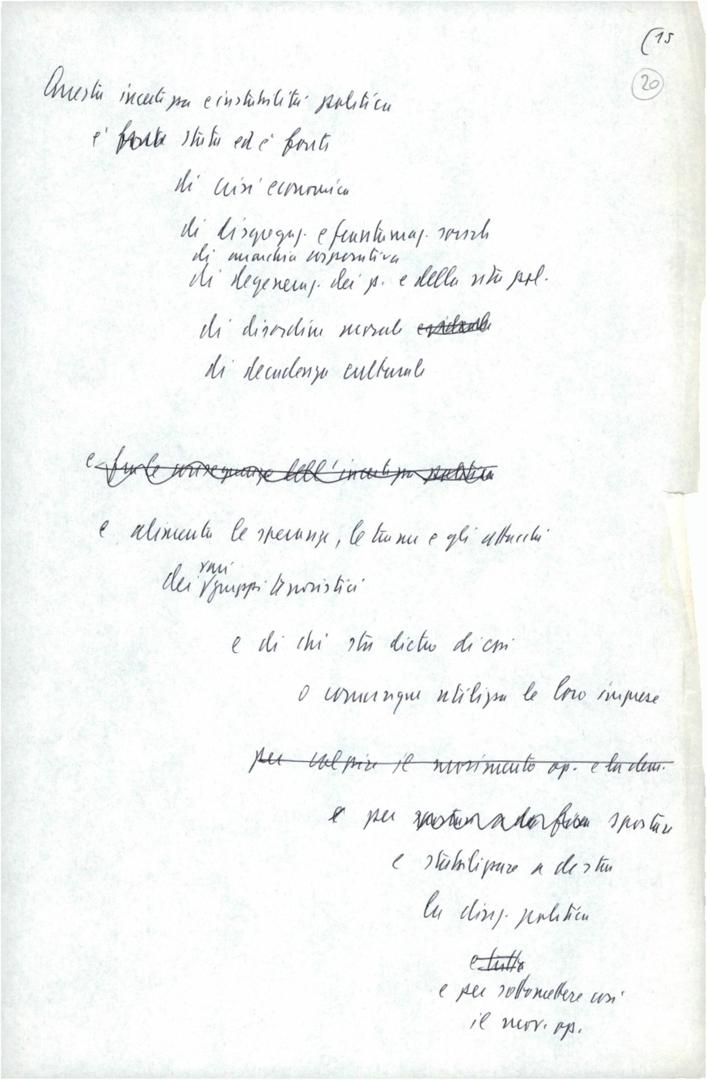 (15
20
Questa incertezza e instabilità politica
è fonte stata ed è fonte
di crisi economica
di disgregaz. e frantumaz. sociale
di anarchia corporativa
di degeneraz. dei p. e della vita pol.
di disordine morale
di decadenza culturale
e fra le conseguenze dell'incertezza politica
e alimenta le speranze, le trame e gli attacchi
vari
dei gruppi terroristici
e di chi sta dietro di essi
o comunque utilizza le loro imprese
per colpire il movimento op. e la dem.
e per spostare
e stabilizzare a destra
la direz. politica
e tutto
e per sottomettere così
il mov. op.